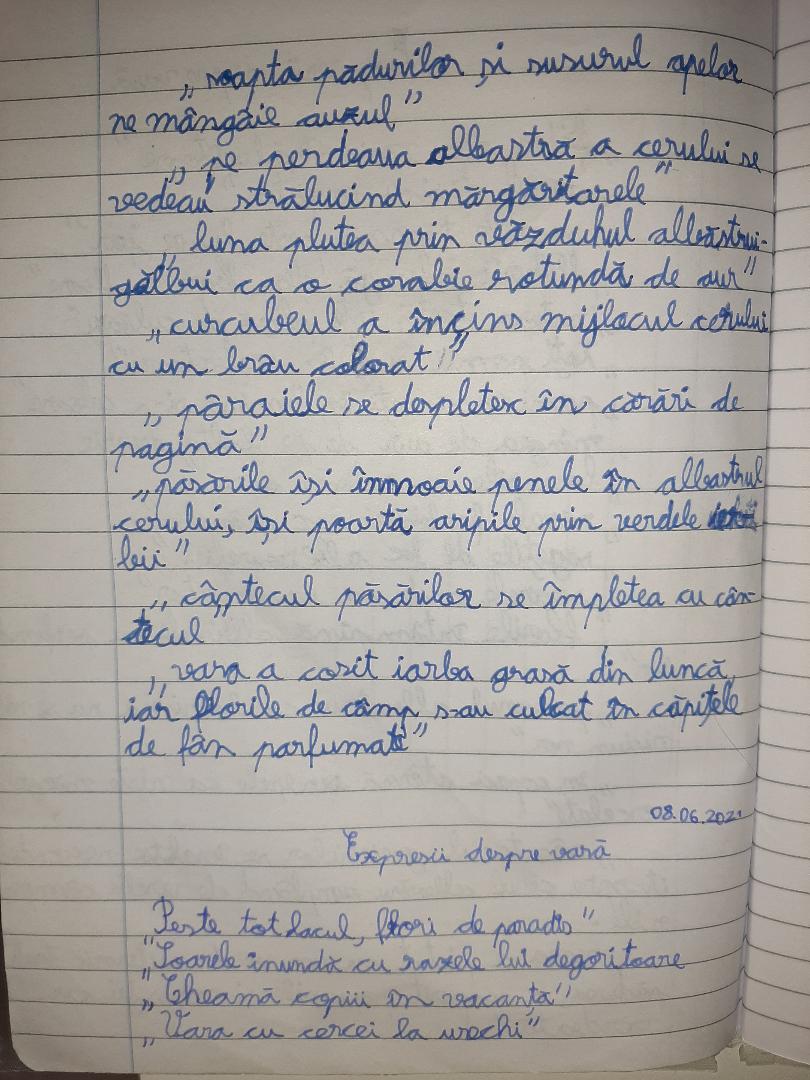 „ șoapta pădurilor și susurul apelor
ne mângâie auzul"
„ pe perdeaua albastră a cerului se
vedeau strălucind mărgăritarele"
„ luna plutea prin văzduhul albăstrui-
gălbui ca o corabie rotundă de aur"
„curcubeul a încins mijlocul cerului
cu un brâu colorat"
„ pâraiele se despletesc în cărări de
pagină"
„păsările își înmoaie penele în albastrul
cerului, își poartă aripile prin verdele
lui"
„ cântecul păsărilor se împletea cu cân-
tecul"
„ vara a cosit iarba grasă din luncă,
iar florile de câmp s-au culcat în căpițele
de fân parfumat"
08.06.2021
Expresii despre vară
„Peste tot lacul, flori de paradis"
„Soarele inundă cu razele lui dogoritoare
„Cheamă copiii în vacanță"
„Vara cu cercei la urechi"